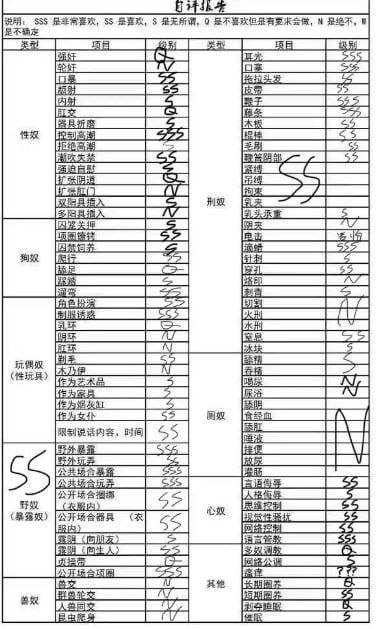 自评报告
说明: SSS 是非常喜欢, SS 是喜欢, S 是无所谓, Q 是不喜欢但是有要求会做, N 是绝不, W
是不确定
类型 项目 级别
性奴
强奸 Q
轮奸 N
口暴 SS
颜射 SS
内射 S
肛交 Q
器具折磨 S
控制高潮 SSS
拒绝高潮 S
潮吹失禁 SS
强迫自慰 S
扩张阴道 Q
扩张肛门 N
双阳具插入 S
多阳具插入 N
狗奴
囚笼关押 S
项圈镣铐 SS
囚禁饲养 S
爬行 SS
舔足 Q
踩踏 S
遛弯 SS
玩偶奴
(性玩具)
角色扮演 SSS
制服诱惑 SSS
乳环 Q
阴环 N
肛环 N
剃毛 SS
木乃伊 N
作为艺术品 S
作为家具 S
作为烟灰缸 S
作为女仆 SS
限制说话内容，时间 SS
SS
野奴
(暴露奴)
野外暴露 SSS
野外玩弄 SS
公共场合暴露 SSS
公共场合玩弄 SSS
公开场合捆绑
(衣服内) SS
公开场合器具 (衣
服内) SS
露阴 (向朋友) S
露阴 (向生人) SS
贞操带 Q
公开场合项圈 SSS
兽奴
兽交 N
群兽轮交 N
人兽同交 N
昆虫爬身 N
类型 项目 级别
刑奴
耳光 SSS
口塞 SSS
拖拉头发 S
皮带 SS
鞭子 SSS
藤条 SSS
木板 S
棍棒 SS
毛刷 SS
鞭笞阴部 SS
紧缚
吊缚
拘束
乳夹
SS
乳头承重 S
阴夹 N
电击
滴蜡 SSS
针刺 S
穿孔 SS
烙印 N
刺青 S
切割
火刑
水刑
N
窒息 SS
冰块 S
厕奴
舔精 S
吞精 S
喝尿 N
尿浴 N
舔阴
食经血
舔肛
唾液
排便
放尿
灌肠
N
心奴
言语侮辱 SS
人格侮辱 S
思维控制 SS
视觉性骚扰 SS
网络控制 SS
语言管教 SSS
其他
多奴调教 Q
网络公调 S
瘙痒 ???
长期圈养 Q
短期圈养 SS
剥夺睡眠 Q
催眠 S